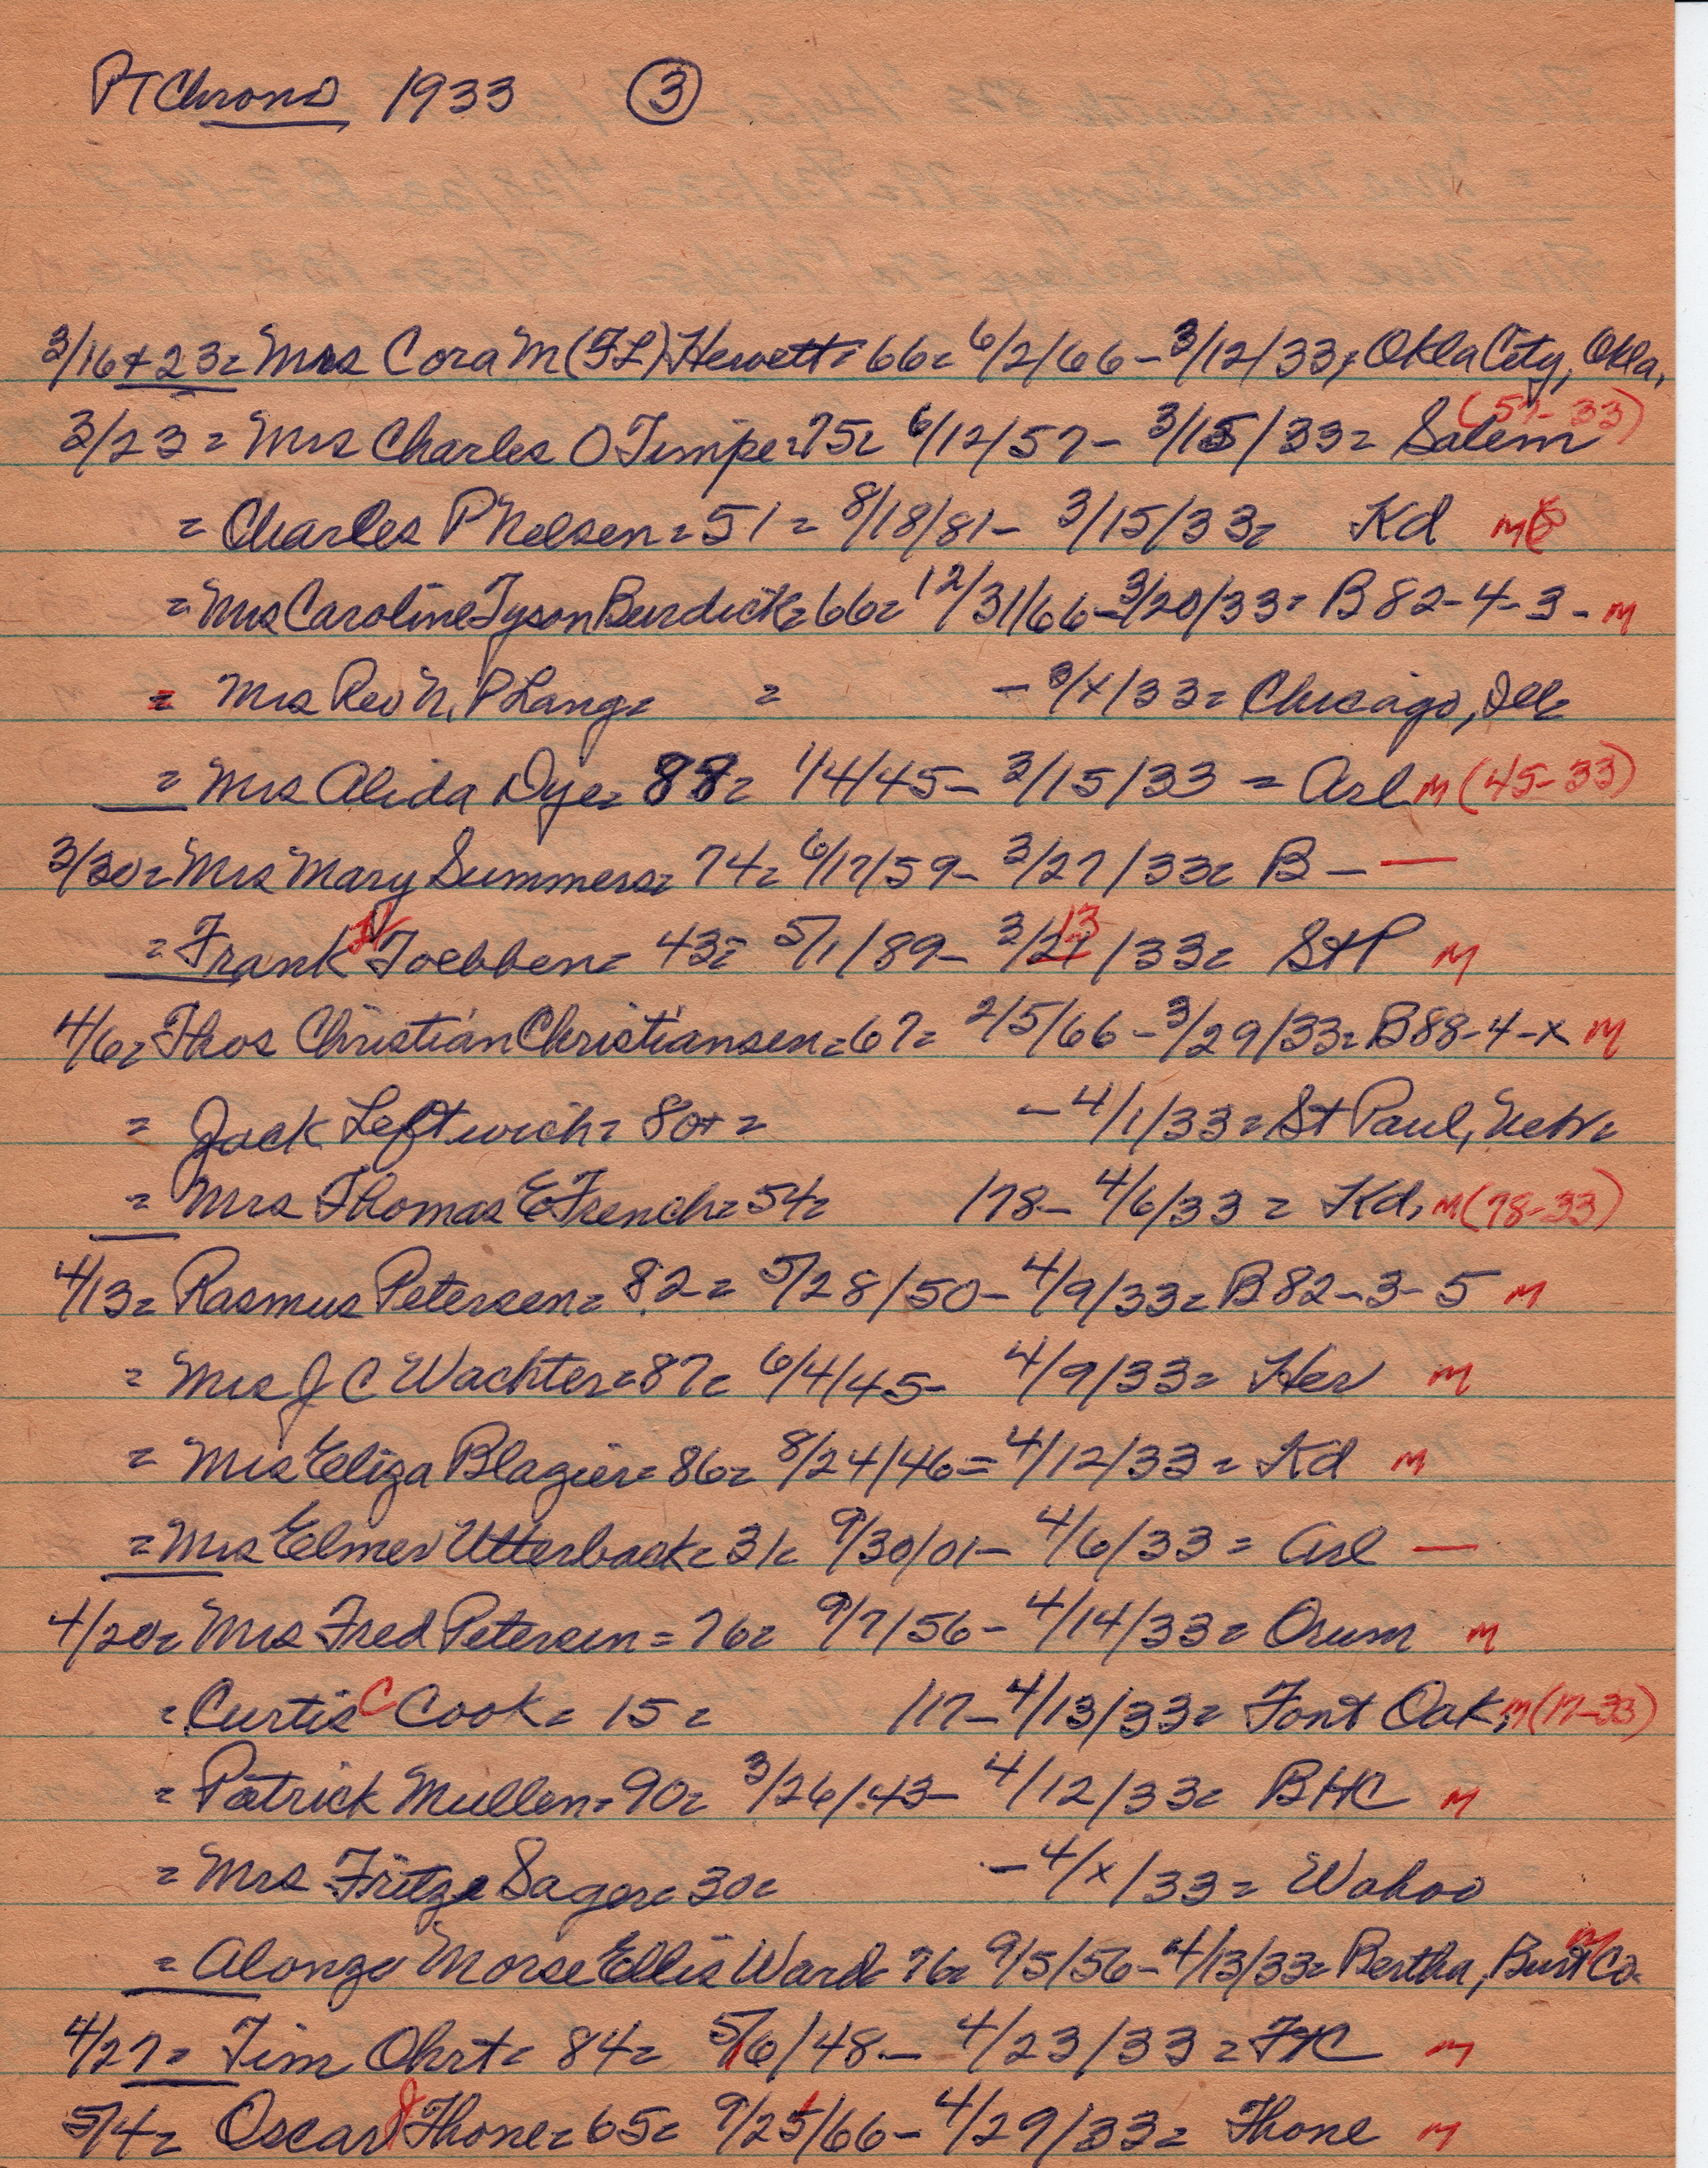 PTChrons 1933 3
3/16+23= Mrs Cora M (FL) Hewett= 66= 6/2/66-3/12/33= Okla City, Okla,
3/23= Mrs Charles O Timpe=75= 6/12/57- 3/15/33= Salem (57-33)
= Charles P Nelsen=51= 8/18/81- 3/15/33= Kd M
= Mrs Caroline Tyson Burdick=66= 12/31/66-3/20/33= B82-4-3- M
= Mrs Rev N. P Lang= = -3/x/33= Chicago, Ill=
= Mrs Alida Dye= 88= 1/4/45- 3/15/33 = Arl M (45-33)
3/30= Mrs Mary Summers= 74= 6/17/59- 3/27/33= B- —
= Frank Toebben= 43= 5/1/89- 3/21/33= StP M 13
4/6= Thos Christian Christiansen=67= 2/5/66-3/29/33= B88-4-x M
= Jack Leftwich= 80+= -4/1/33= St Paul, Nebr=
= Mrs Thomas E French=54= /78- 4/6/33 = Kd, M (78-33)
4/13= Rasmus Petersen= 82= 5/28/50-4/9/33= B82-3-5 M
= Mrs J C Wachter=87= 6/4/45- 4/9/33= Her M
= Mrs Eliza Blazier= 86= 8/24/46=4/12/33= Kd M
= Mrs Elmer Utterback= 31= 9/30/01- 4/6/33= Arl —
4/20= Mrs Fred Petersen= 76= 9/7/56- 4/14/33= Orum M
= Curtis C Cook= 15= /17-4/13/33= Font Oak, M (17-33)
= Patrick Mullen= 90= 3/26/43- 4/12/33= BHC M
= Mrs Fritz Sager= 30= -4/x/33= Wahoo
= Alonzo Morse Ellis Ward 76= 9/5/56-4/13/33= Bertha, Burt Co- M
4/27= Tim Ohrt= 84= 5/6/48- 4/23/33= FtC M
5/4= Oscar J Thone=65= 9/25/66- 4/29/33= Thone M